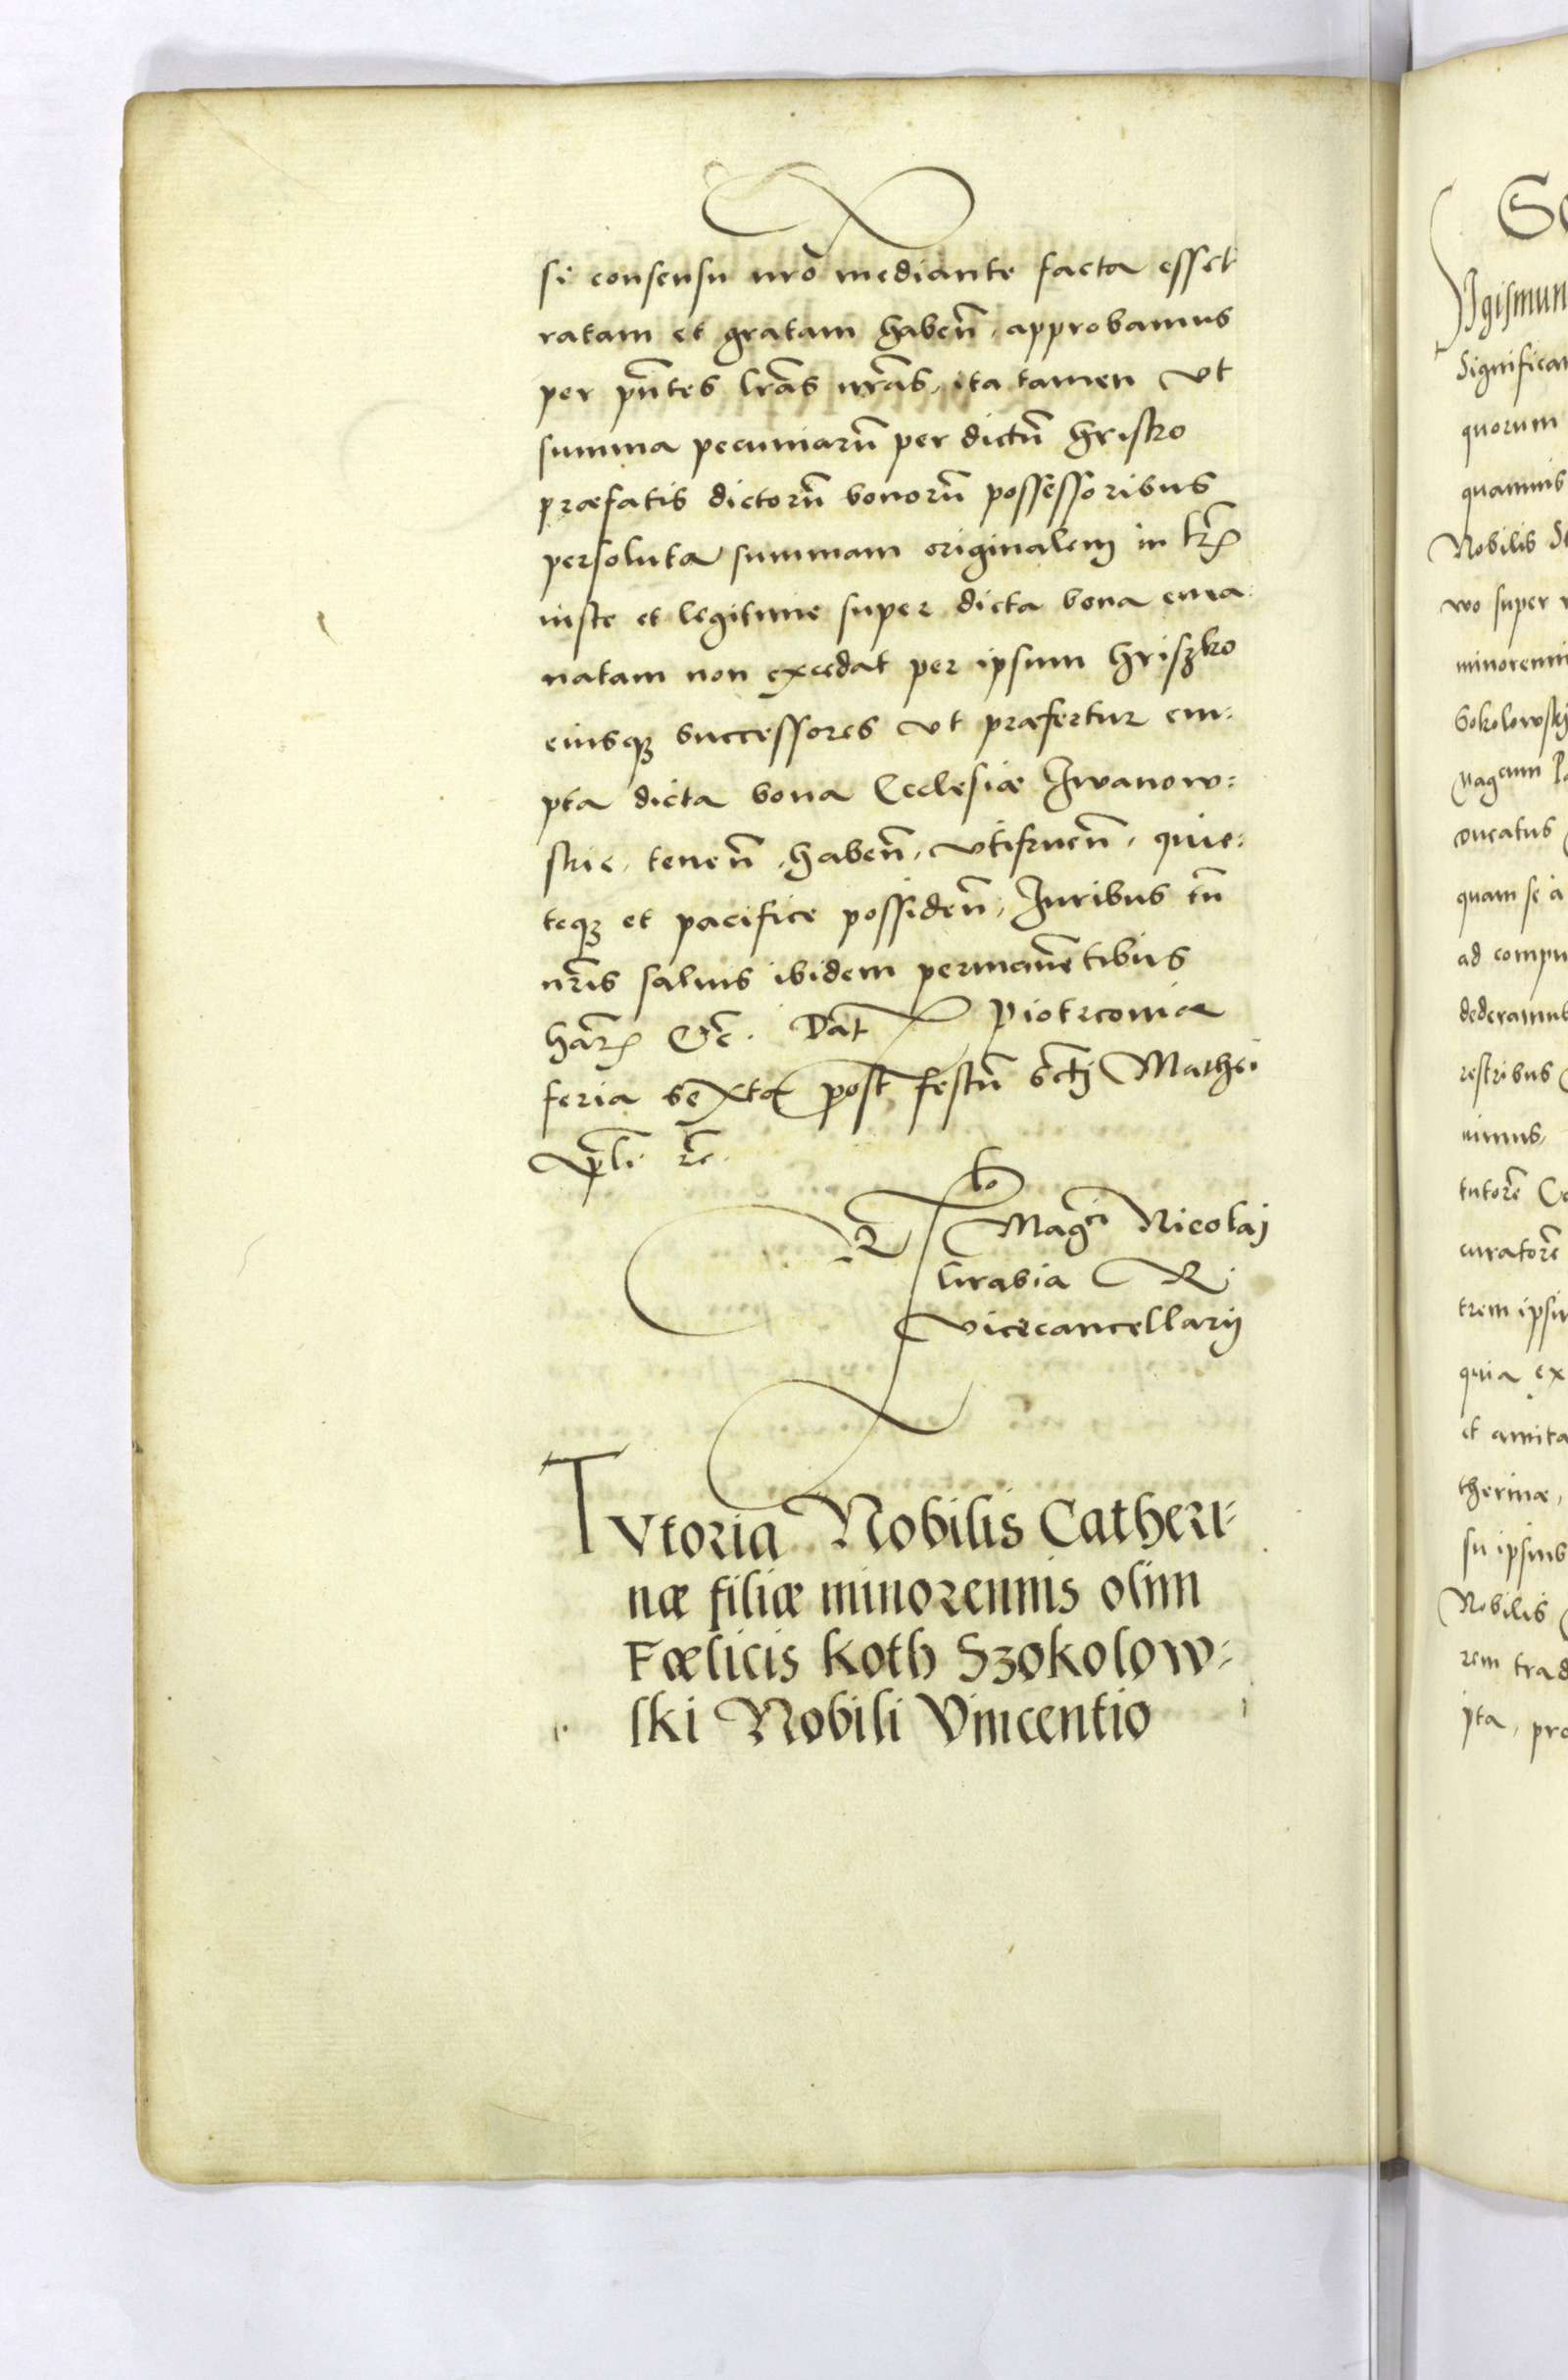 si consensu nro mediante facta esset
ratam et gratam haben̄, approbamus
per pn̄tes lr̄as nr̄as, ita tamen vt
summa pecuniarū per dictū Hrisko
præfatis dictorū bonorū possessoribus
persoluta summam originalem in lr̄is
iuste et legitime super dicta bona ema:
natam non excedat per ipsum Hriszko
eiusq; successores vt præfertur em:
pta dicta bona Ecclesiæ Iwanow:
skie, tenen̄, haben̄, vtifruen̄, quie:
teq; et pacifice possiden̄, Iuribus tn̄
nr̄is saluis ibidem permanētibus
har̄ &c. Dat Piotrcouiæ
feria sexta post festū sctj Mathei
Apl̄i
Rꝉo
Mag^ci Nicolaj
Grabia R.
Vicecancellarij
Tvtoria Nobilis Catheri:
næ filiæ minorennis olim
Fœlicis Koth Szokolow:
ski Nobili Vincentio
Significa
quorum
quamuis
Nobilis
wo super
Sokolowski
ducatus
quam se a
ad compu
dederamus
restribus
tutorē
curatorē
trem ipsiu
quia ex
et amita
therinæ,
su ipsius
Nobilis
rem trad